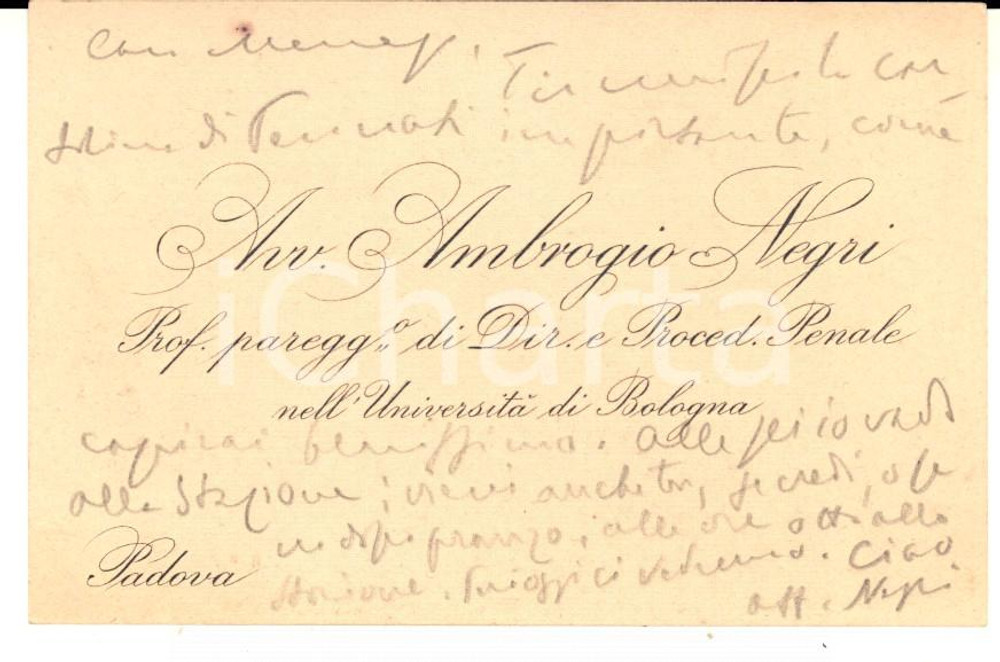 importante, come
Avv. Ambrogio Negri
Prof. paregg.º di Dir. e Proced. Penale
nell'Università di Bologna
iCharta
capirai benissimo. Alle sei io vado
alla Stazione; vieni anche tu, se credi, o se
no dopo pranzo, alle ore otto alla
stazione. ci vedremo. Ciao
aff. Negri
Padova